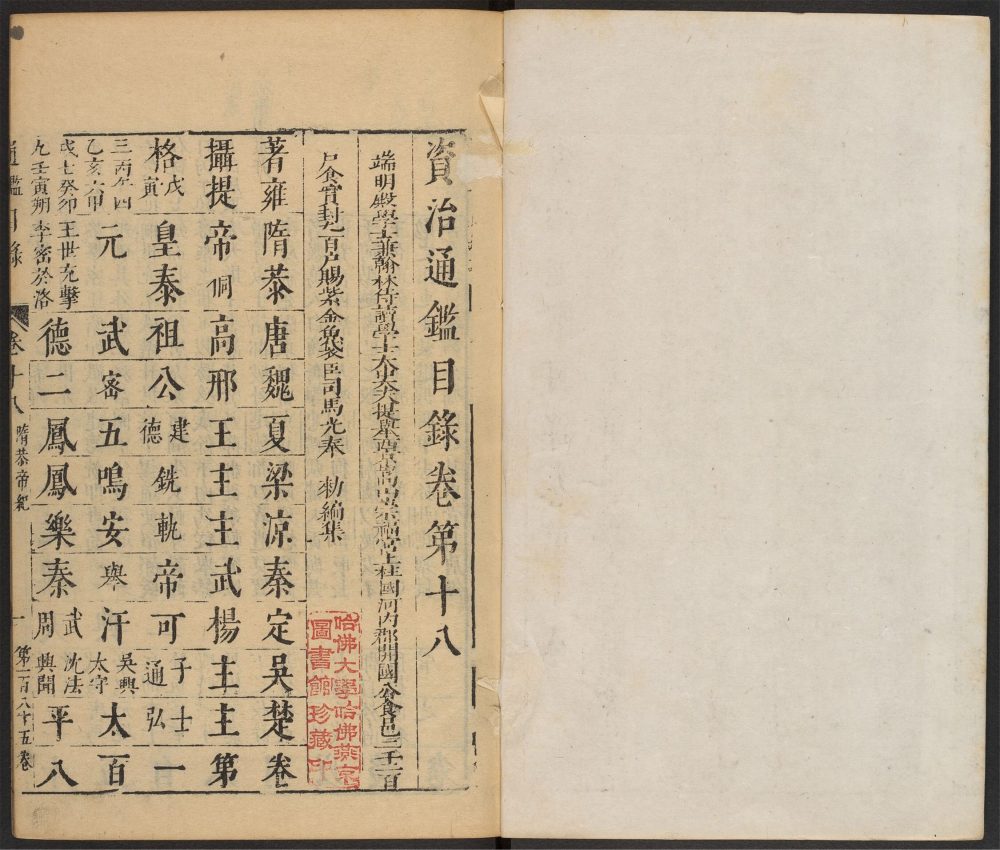 資治通鑑目錄卷第十八
端明殿學士兼翰林侍讀學士太中大夫提舉西京嵩山崇福宮上柱國河內郡開國公食邑二千二百
戶食實封九百戶賜紫金魚袋臣司馬光奉 勅編集
哈佛大學哈佛燕京
圖書館珍藏印
著雍 隋恭 唐 魏 夏 梁 涼 秦 定 吳 楚 卷
攝提 帝侗 高 邢 王 主 主 武 楊 主 主 第
格戊寅 皇泰 祖 公 建德 銑 軌 帝 可 子通 士弘 一
三丙午四乙亥六甲 元 武 密 五 鳴 安 舉 汗 吳興太守 太 百
戌七癸卯九壬寅朔 王世充擊李密於洛 德 二 鳳 鳳 樂 秦 武周 沈法興聞 平 八
通鑑目錄 卷十八 隋恭帝紀 一 第一百八十五卷